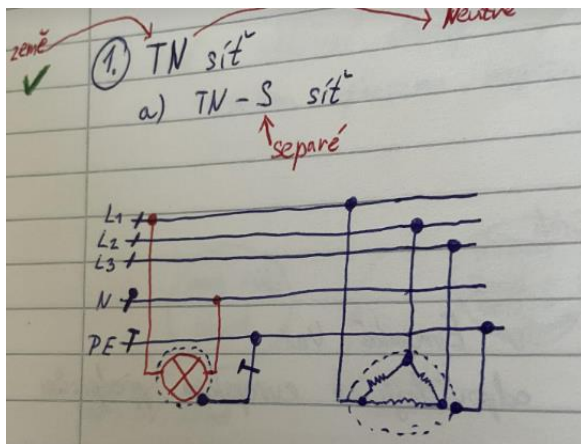 Neutre
země
1. TN síť
a) TN - S síť
separé
L1
L2
L3
N
PE